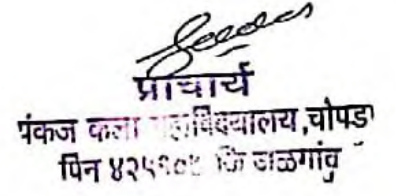 प्राचार्य
पंकज कला महाविद्यालय,चोपडा
पिन ४२५१०७ जि जळगांव